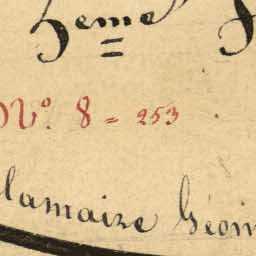 5eme
N° 8 = 253
lamaire Géom